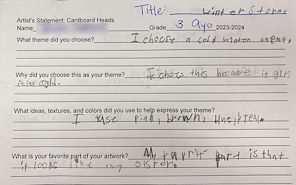 Title: Winter Storm
Artist's Statement: Cardboard Heads
Name Grade 3 Ayo 2023-2024
What theme did you choose? I choose a cold winter
Why did you choose this as your theme? I chose this because it gets
What ideas, textures, and colors did you use to help express your theme?
I use pink, brown,
What is your favorite part of your artwork? My favrit part is that
it looks like my sister.